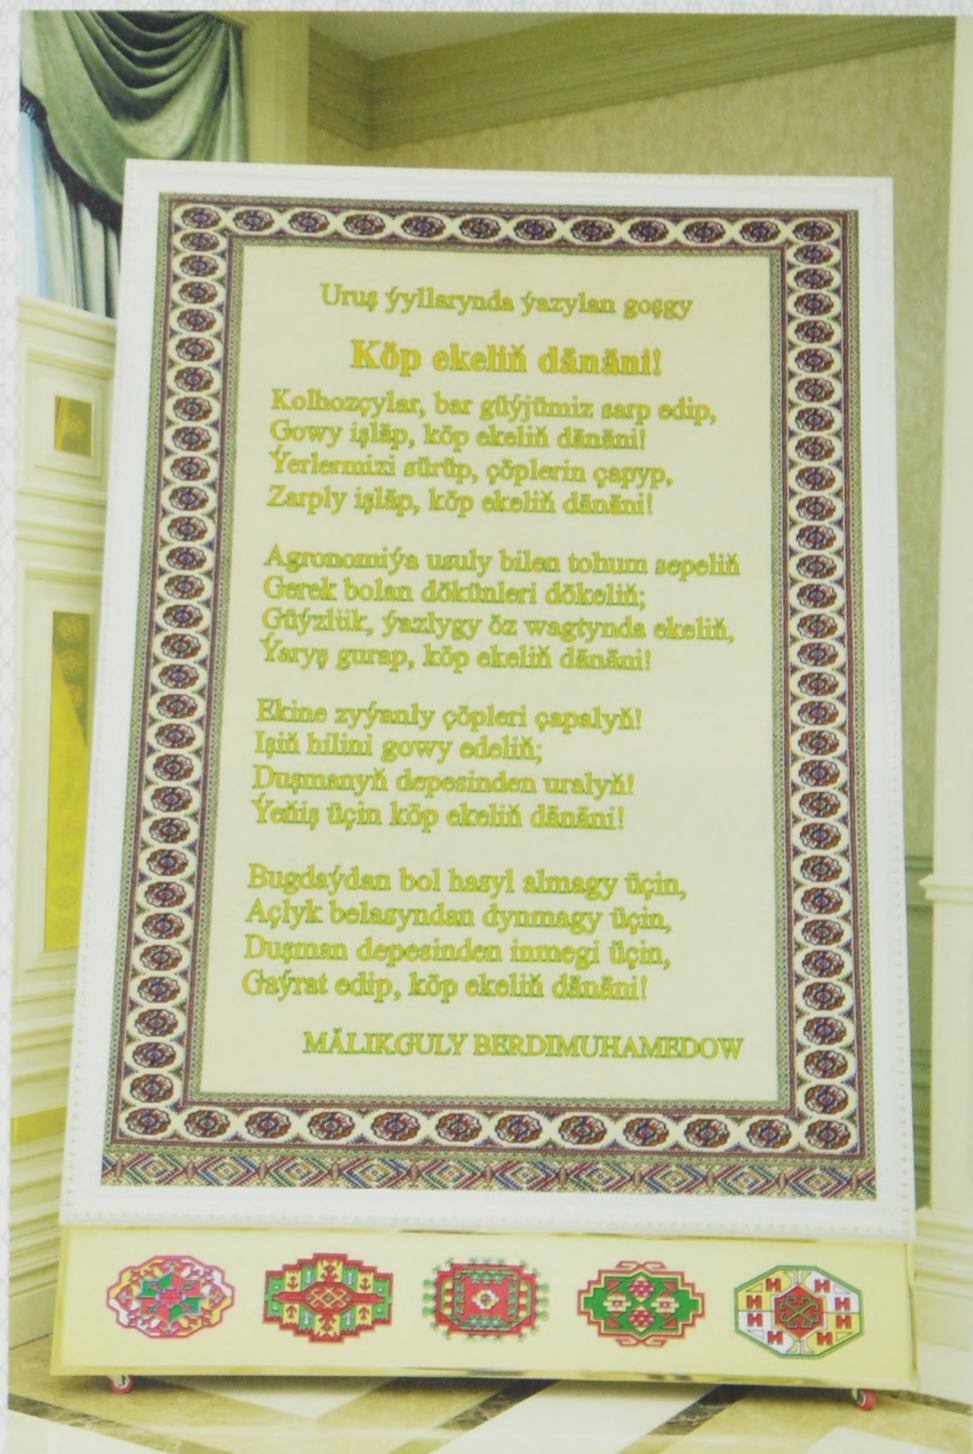 Uruş ýyllarynda ýazylan goşgy
Köp ekeliň dänäni!
Kolhozçylar, bar güýjümiz sarp edip,
Gowy işläp, köp ekeliň dänäni!
Ýerlermizi sürüp, çöplerin çapyp,
Zarply işläp, köp ekeliň dänäni!
Agronomiýa usuly bilen tohum sepeliň
Gerek bolan dökünleri dökeliň;
Güýzlük, ýazlygy öz wagtynda ekeliň,
Ýaryş gurap, köp ekeliň dänäni!
Ekine zyýanly çöpleri çapalyň!
Işiň hilini gowy edeliň;
Duşmanyň depesinden uralyň!
Ýeňiş üçin köp ekeliň dänäni!
Bugdaýdan bol hasyl almagy üçin,
Açlyk belasyndan dynmagy üçin,
Duşman depesinden inmegi üçin,
Gaýrat edip, köp ekeliň dänäni!
MÄLIKGULY BERDIMUHAMEDOW